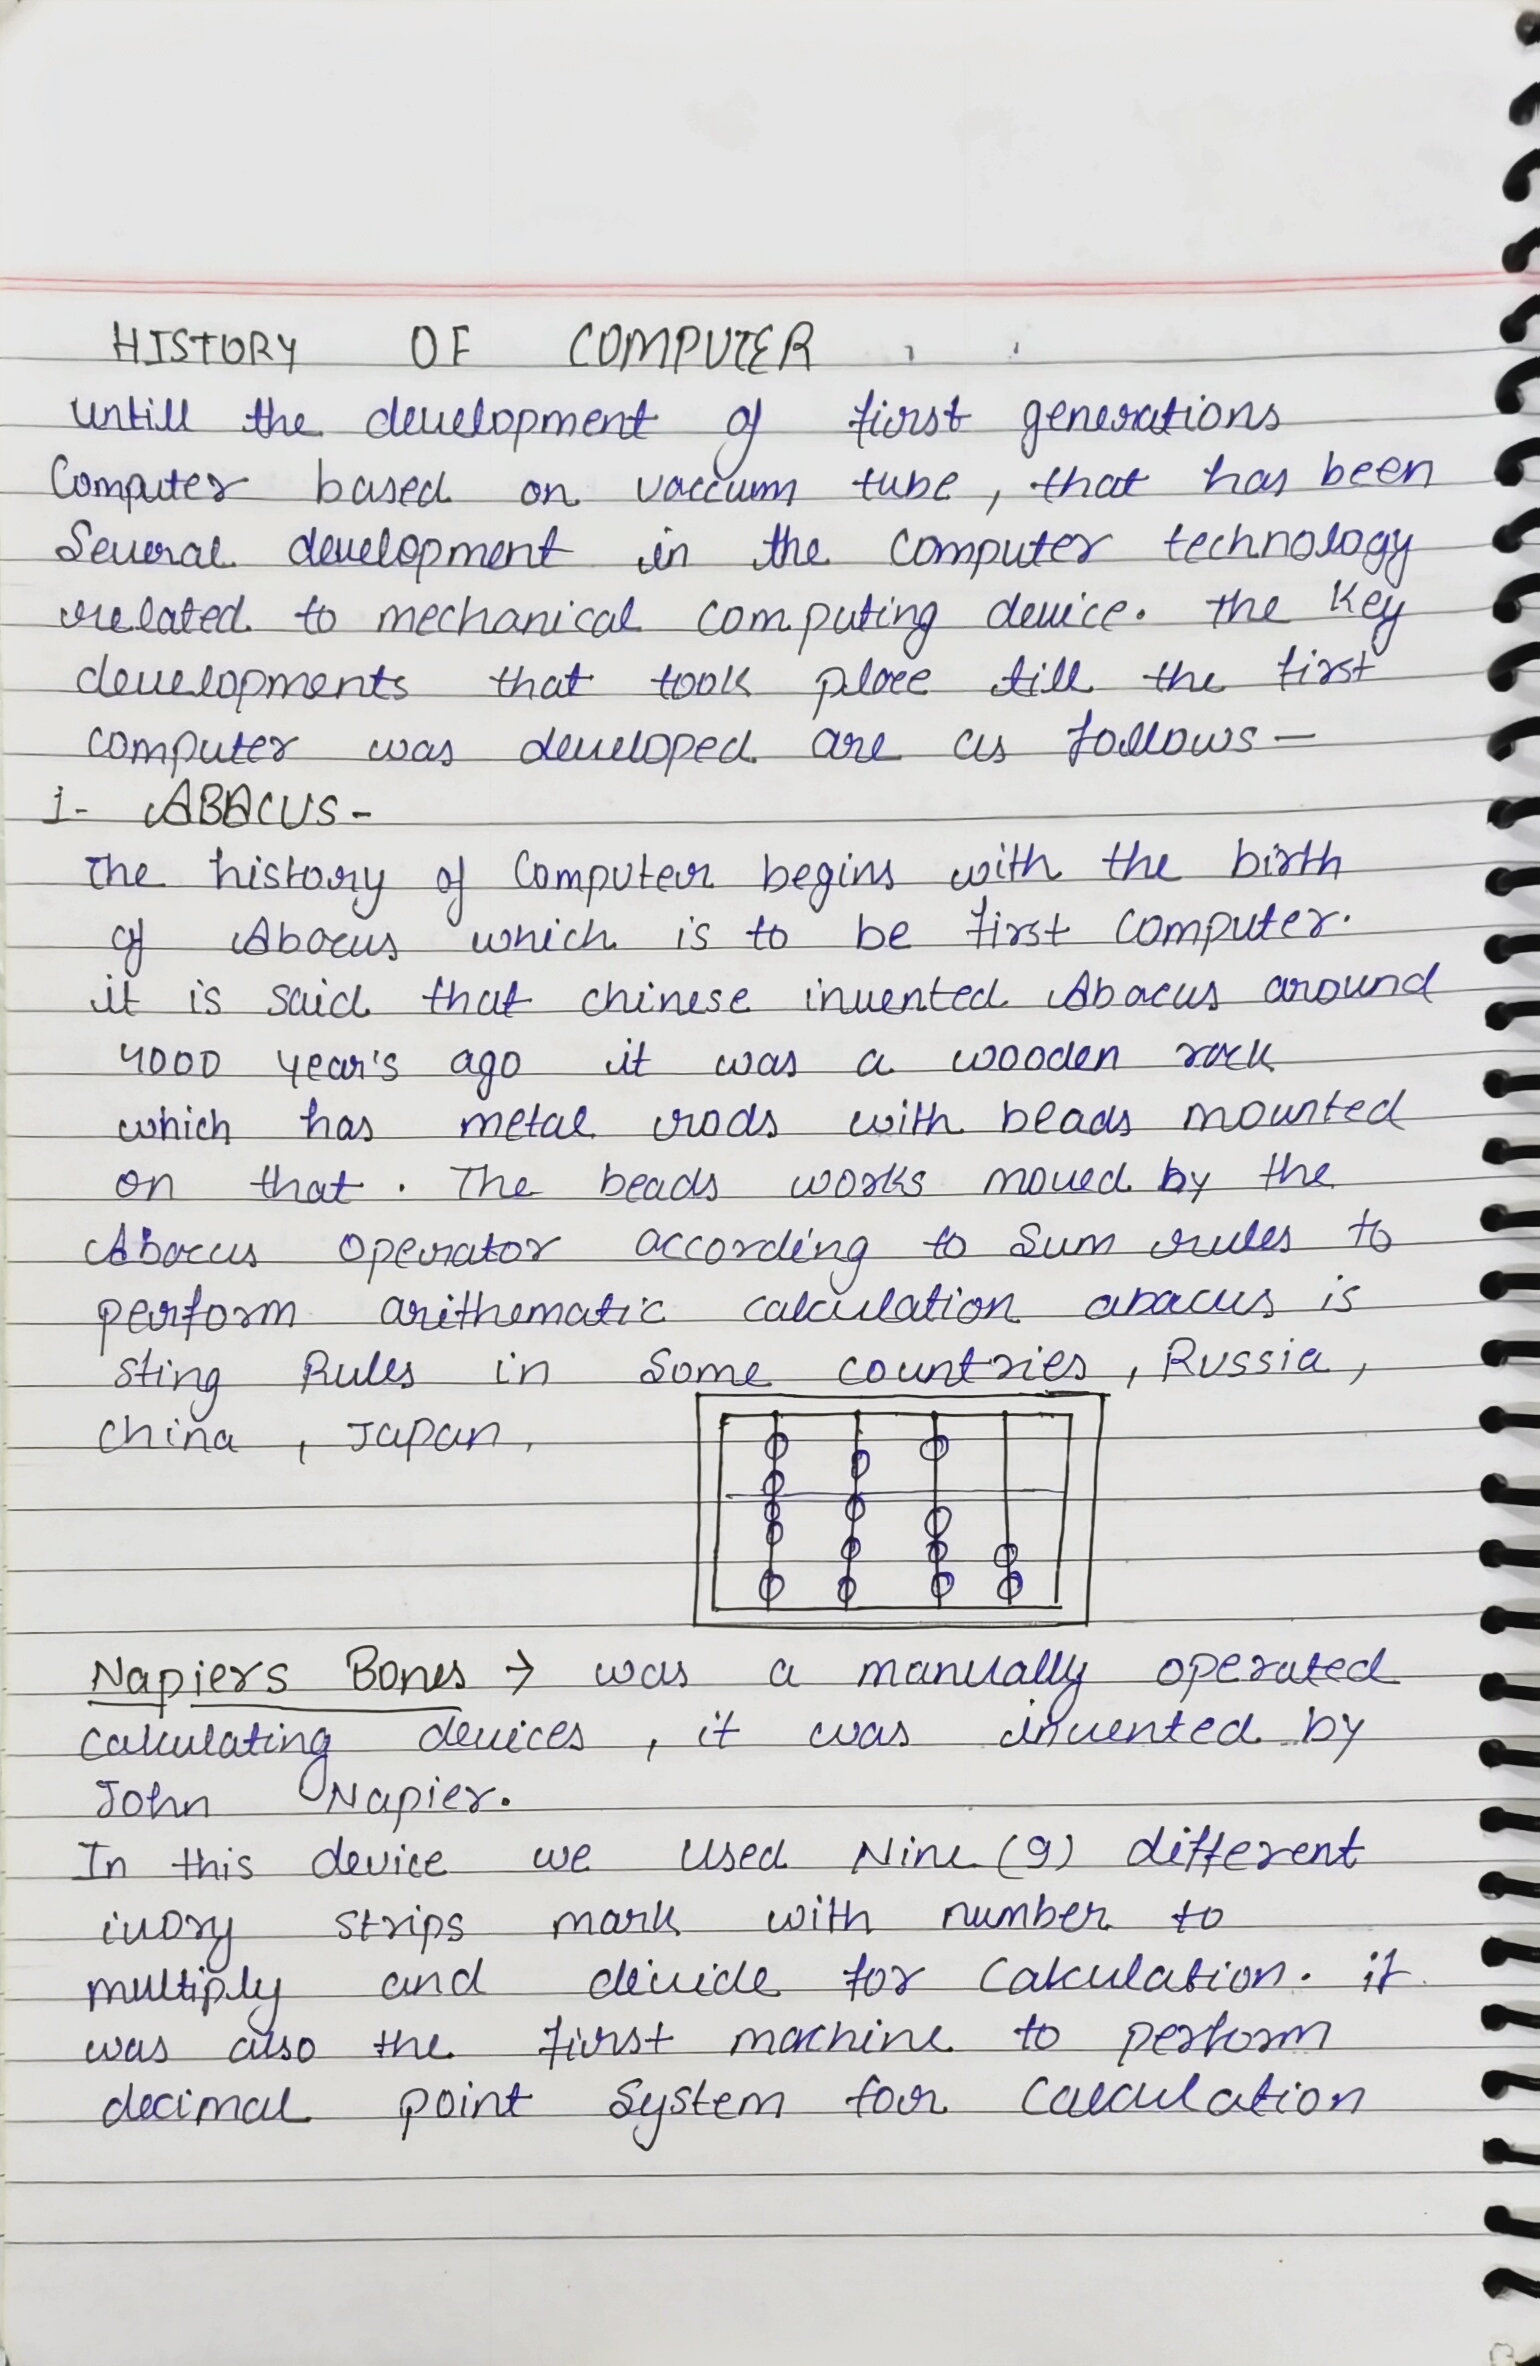 HISTORY OF COMPUTER
untill the development of first generations
Computer based on vaccum tube, that has been
Several development in the computer technology
related to mechanical computing device. The Key
developments that took place till the first
computer was developed are as follows—
1- ABACUS-
The history of Computer begins with the birth
of Abacus which is to be first computer.
it is said that chinese invented Abacus around
4000 year's ago it was a wooden rack
which has metal rods with beads mounted
on that. The beads works moved by the
Abacus operator according to Sum rules to
perform arithematic calculation abacus is
sting Rules in Some countries, Russia,
China, Japan,
Napiers Bones → was a manually operated
calculating devices, it was invented by
John Napier.
In this device we used Nine (9) different
ivory strips mark with number to
multiply and divide for Calculation. it
was also the first machine to perform
decimal point System for Calculation